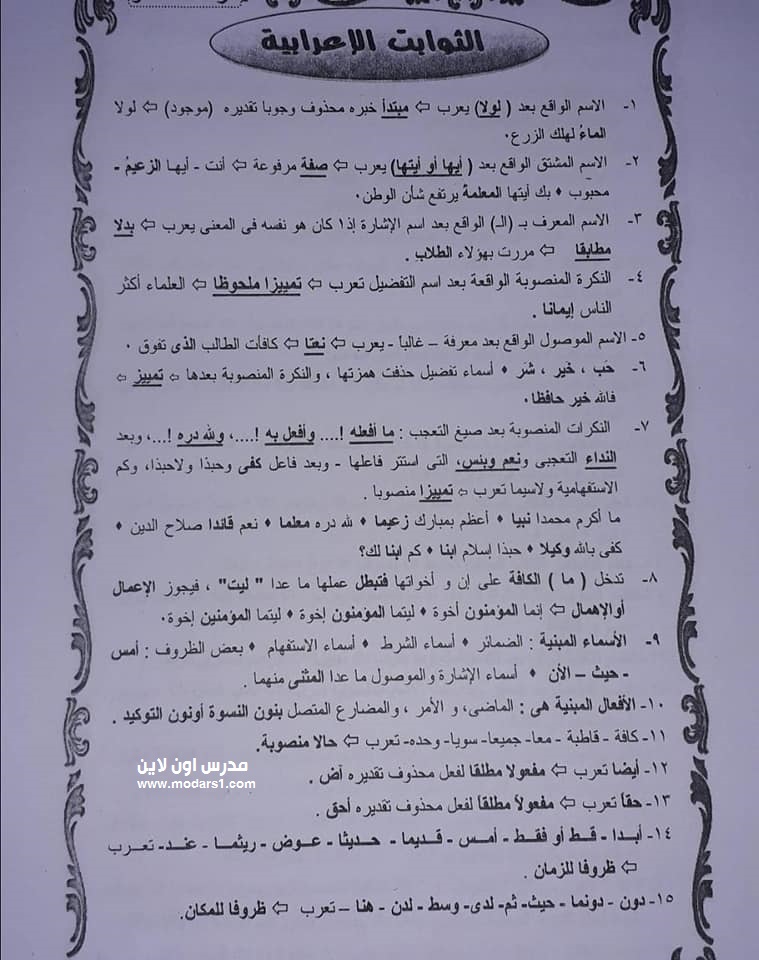 الثوابت الإعرابية
١- الاسم الواقع بعد ( لولا) يعرب ⇦ مبتدأ خبره محذوف وجوبا تقديره (موجود) ⇦ لولا
الماءُ لهلك الزرع.
٢- الاسم المشتق الواقع بعد ( أيها أو أيتها) يعرب ⇦ صفة مرفوعة ⇦ أنت - أيها الزعيمُ -
محبوب ♦ بك أيتها المعلمةُ يرتفع شأن الوطن.
٣- الاسم المعرف بـ (الـ) الواقع بعد اسم الإشارة إذا كان هو نفسه فى المعنى يعرب ⇦ بدلا
مطابقا ⇦ مررت بهؤلاء الطلاب .
٤- النكرة المنصوبة الواقعة بعد اسم التفضيل تعرب ⇦ تمييزا ملحوظا ⇦ العلماء أكثر
الناس إيمانا .
٥- الاسم الموصول الواقع بعد معرفة – غالباً - يعرب ⇦ نعتا ⇦ كافأت الطالب الذى تفوق .
٦- حَب ، خَير ، شَر ♦ أسماء تفضيل حذفت همزتها ، والنكرة المنصوبة بعدها ⇦ تمييز ⇦
فالله خير حافظا.
٧- النكرات المنصوبة بعد صيغ التعجب : ما أفعله !.... وأفعل به !....، ولله دره !...، وبعد
النداء التعجبى ونعم وبئس، التى استتر فاعلها - وبعد فاعل كفى وحبذا ولاحبذا، وكم
الاستفهامية ولاسيما تعرب ⇦ تمييزا منصوبا .
ما أكرم محمدا نبيا ♦ أعظم بمبارك زعيما ♦ لله دره معلما ♦ نعم قائدا صلاح الدين ♦
كفى بالله وكيلا ♦ حبذا إسلام ابنا ♦ كم ابنا لك؟
٨- تدخل ( ما ) الكافة على إن و أخواتها فتبطل عملها ما عدا " ليت" ، فيجوز الإعمال
أوالإهمال ⇦ إنما المؤمنون أخوة ♦ ليتما المؤمنون إخوة ♦ ليتما المؤمنين إخوة.
٩- الأسماء المبنية : الضمائر ♦ أسماء الشرط ♦ أسماء الاستفهام ♦ بعض الظروف : أمس
- حيث – الأن ♦ أسماء الإشارة والموصول ما عدا المثنى منهما.
١٠- الأفعال المبنية هى : الماضى، و الأمر ، والمضارع المتصل بنون النسوة أونون التوكيد .
١١- كافة - قاطبة - معا- جميعا- سويا- وحده- تعرب ⇦ حالا منصوبة.
١٢- أيضا تعرب ⇦ مفعولا مطلقا لفعل محذوف تقديره آض .
١٣- حقاً تعرب ⇦ مفعولاً مطلقاً لفعل محذوف تقديره أحق .
١٤- أبدا - قط أو فقط - أمس - قديما - حديثا - عوض - ريثما - عند- تعرب
⇦ ظروفا للزمان .
١٥- دون - دونما - حيث- ثم- لدى- وسط - لدن - هنا – تعرب ⇦ ظروفا للمكان.
مدرس اون لاين
www.modars1.com